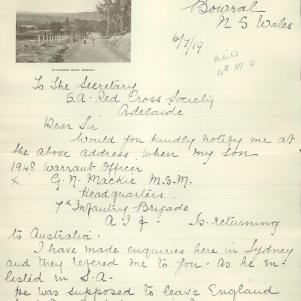 Bowral
N S Wales
6/7/19
To The Secretary
S.A. Red Cross Society
Adelaide
Dear Sir
Would you kindly notify me at
the above address when my son
1948 Warrant Officer
x G. N. Mackie M.S.M.
Headquarters
7th Infantry Brigade
A I F. Is returning
to Australia.
I have made enquiries here in Sydney
and they refered me to you. As he in-
listed in S.A.
He was supposed to leave England